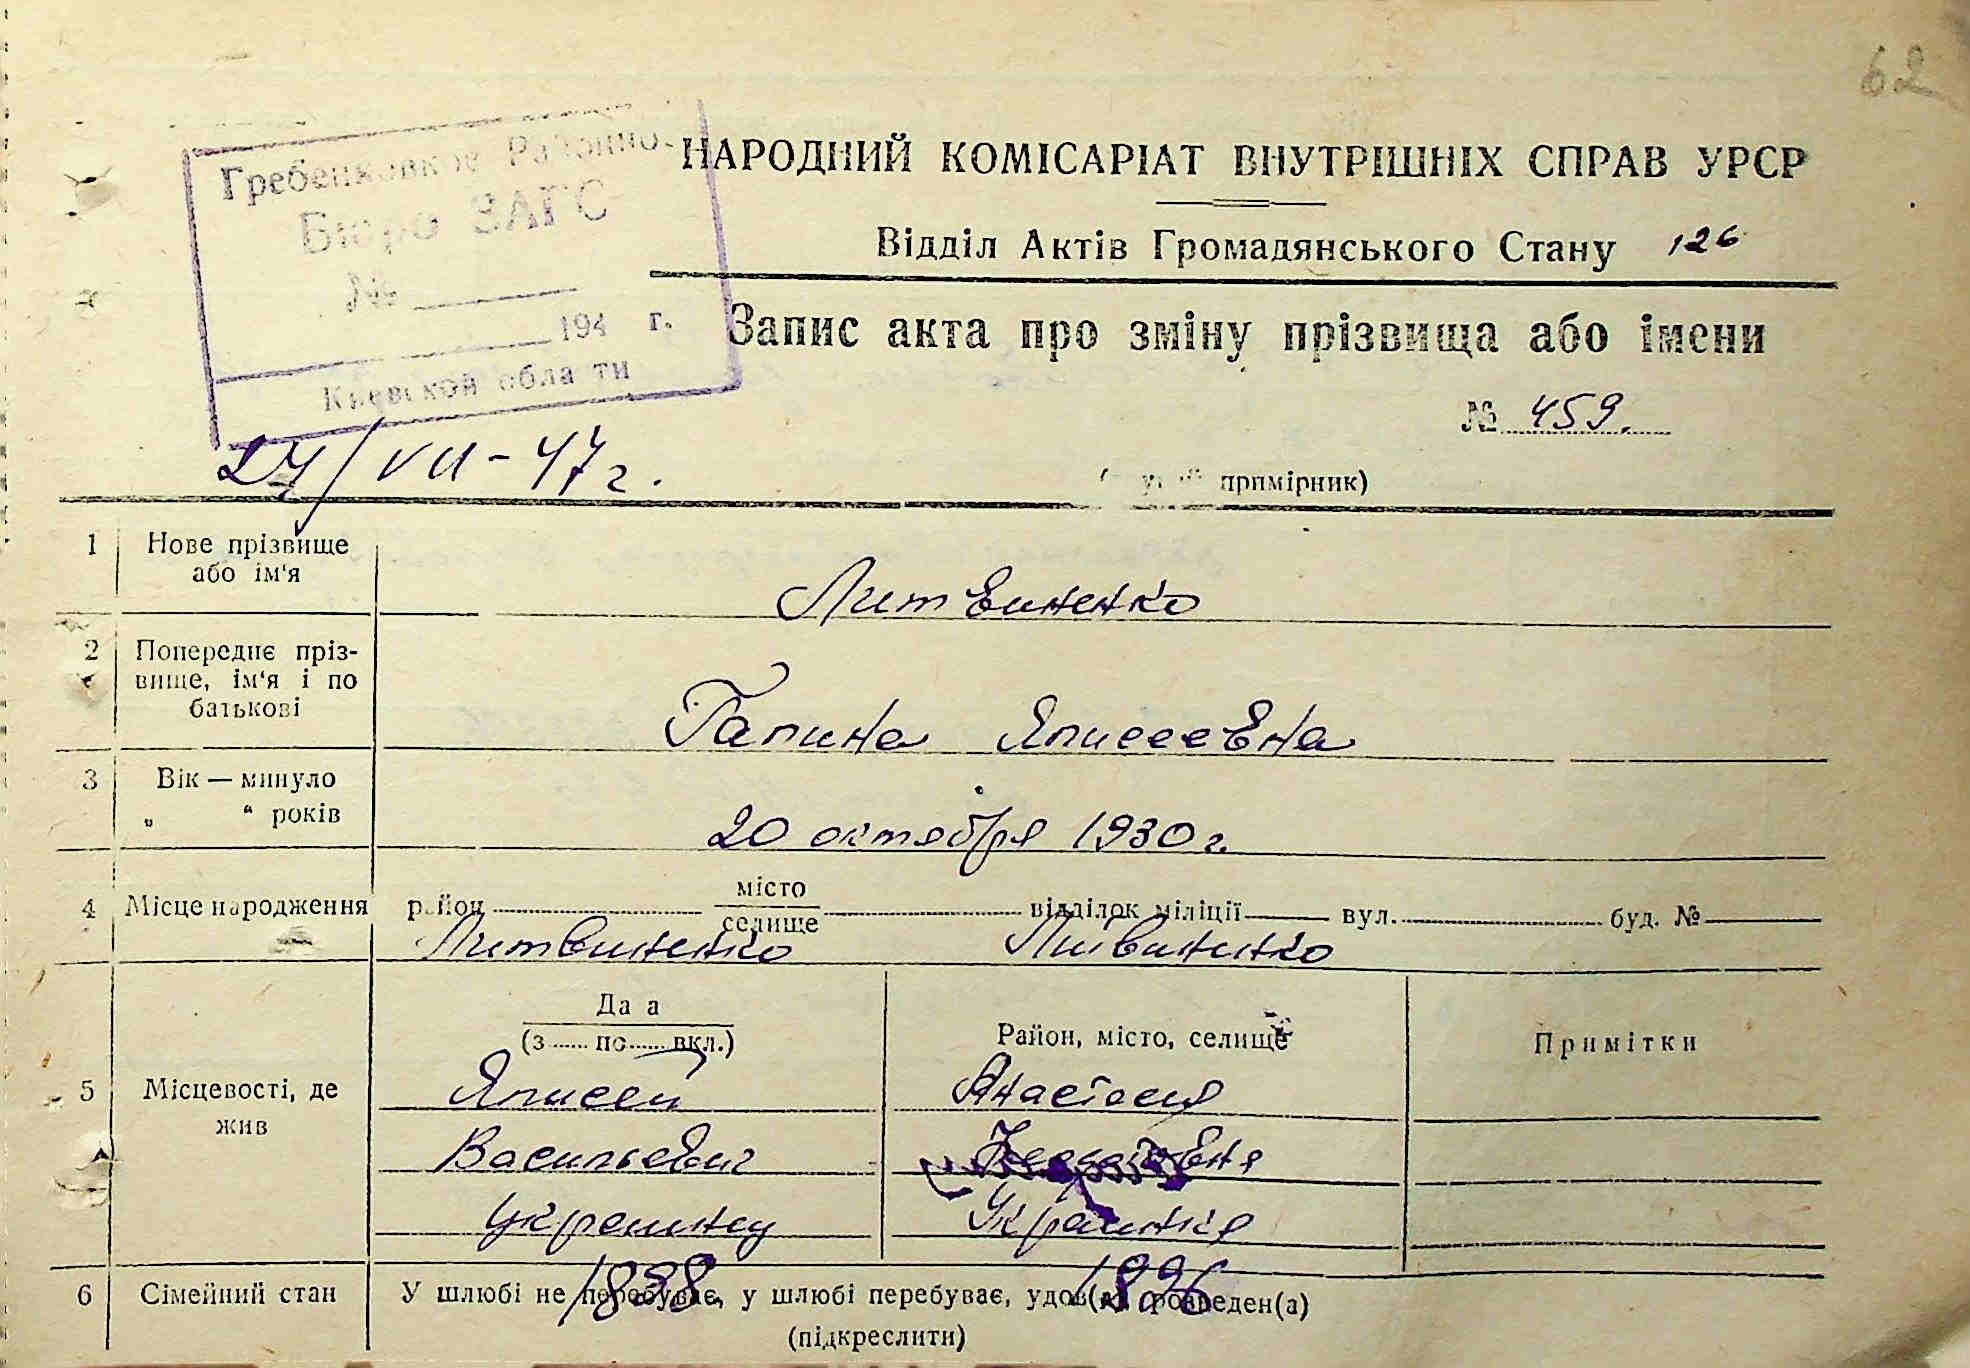 62
Гребенковкое Районно-
Бюро ЗАГС
№
194 г.
Киевской области
НАРОДНИЙ КОМІСАРІАТ ВНУТРІШНІХ СПРАВ УРСР
Відділ Актів Громадянського Стану 126
Запис акта про зміну прізвища або імени
№ 459.
24/VII-47 г.
примірник)
1 Нове прізвище
або ім'я
Литвиненко
2 Попереднє пріз-
вище, ім'я і по
батькові
Галина Елисеевна
3 Вік — минуло
„ “ років
20 октября 1930 г.
4 Місце народження район місто
селище відділок міліції вул. буд. №
Литвиненко Литвиненко
Дата
(з ...... по ...... вкл.)
Район, місто, селище
Примітки
5 Місцевості, де
жив
Елисей Анастасия
Васильевич
Украинец Украинка
1898 1896
6 Сімейний стан У шлюбі не перебуває, у шлюбі перебуває, удов(а) розведен(а)
(підкреслити)